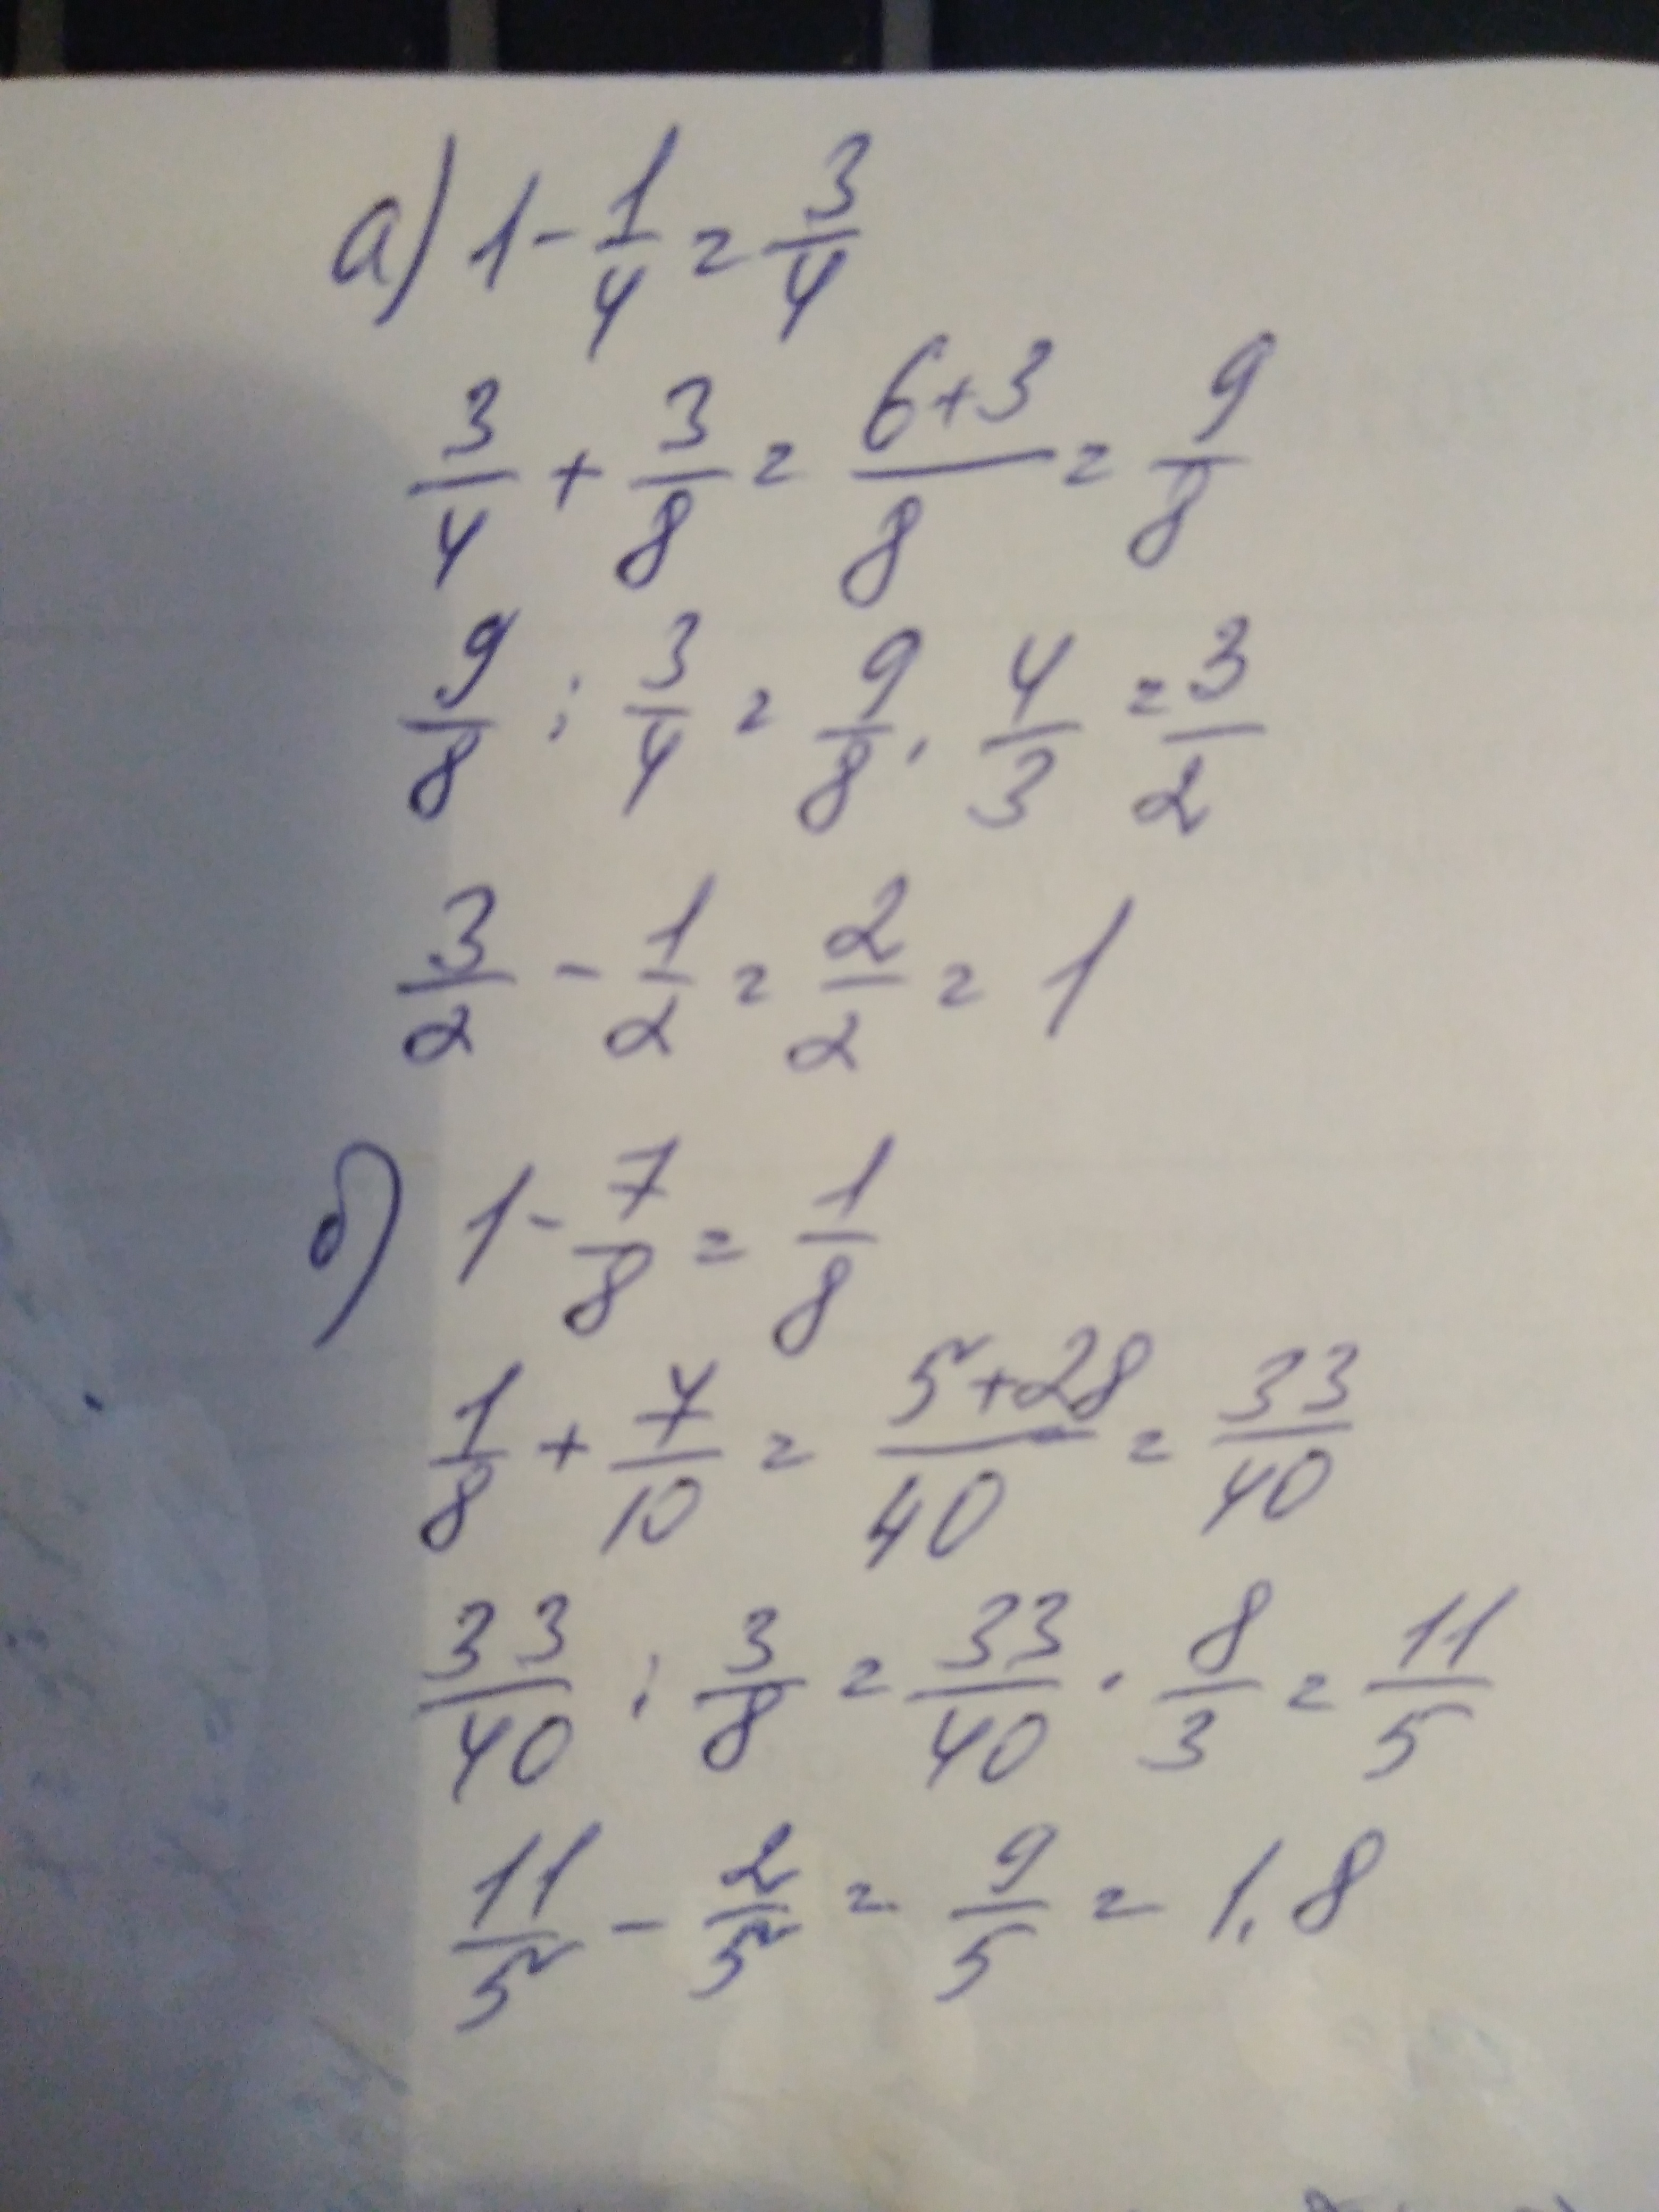 а) 1 - 1/4 = 3/4
3/4 + 3/8 = (6+3)/8 = 9/8
9/8 : 3/4 = 9/8 · 4/3 = 3/2
3/2 - 1/2 = 2/2 = 1
б) 1 - 7/8 = 1/8
1/8 + 7/10 = (5+28)/40 = 33/40
33/40 : 3/8 = 33/40 · 8/3 = 11/5
11/5 - 2/5 = 9/5 = 1.8